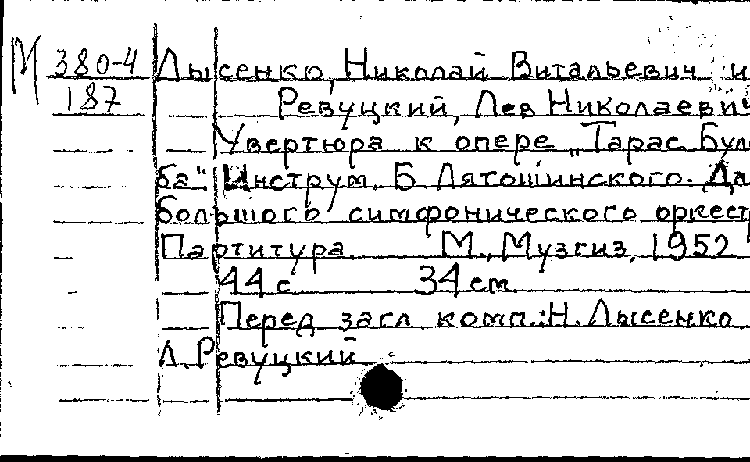 М 380-4 Лысенко, Николай Витальевич и
187 Ревуцкий, Лев Николаевич
Увертюра к опере „Тарас Буль
ба". Инструм. Б. Лятошинского. Дл
большого симфонического оркест
Партитура. М., Музгиз, 1952
44 с 34 см.
Перед загл комп.: Н. Лысенко
Л. Ревуцкий